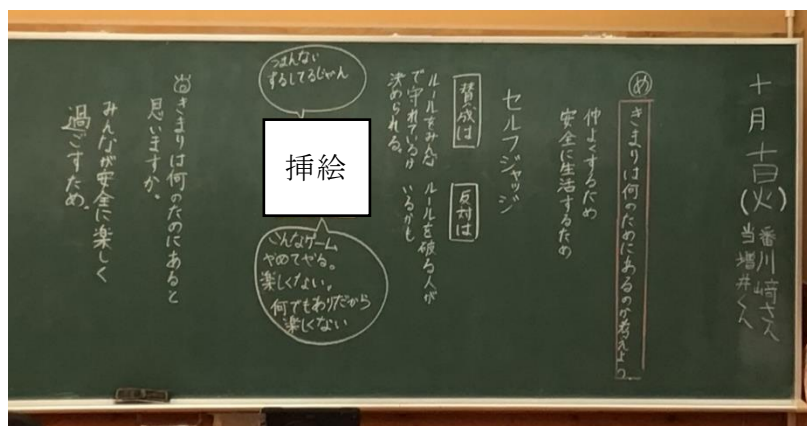 十月十日(火)
番川﨑さん
当増井くん
め
きまりは何のためにあるのか考えよう。
仲よくするため
安全に生活するため
セルフジャッジ
賛成は
ルールをみんな
で守れているか
決められる。
反対は
ルールを破る人が
いるかも
つまんない
ずるしてるじゃん
挿絵
こんなゲーム
やめてやる。
楽しくない。
何でもありだから
楽しくない
きまりは何のためにあると
思いますか。
みんなが安全に楽しく
過ごすため。